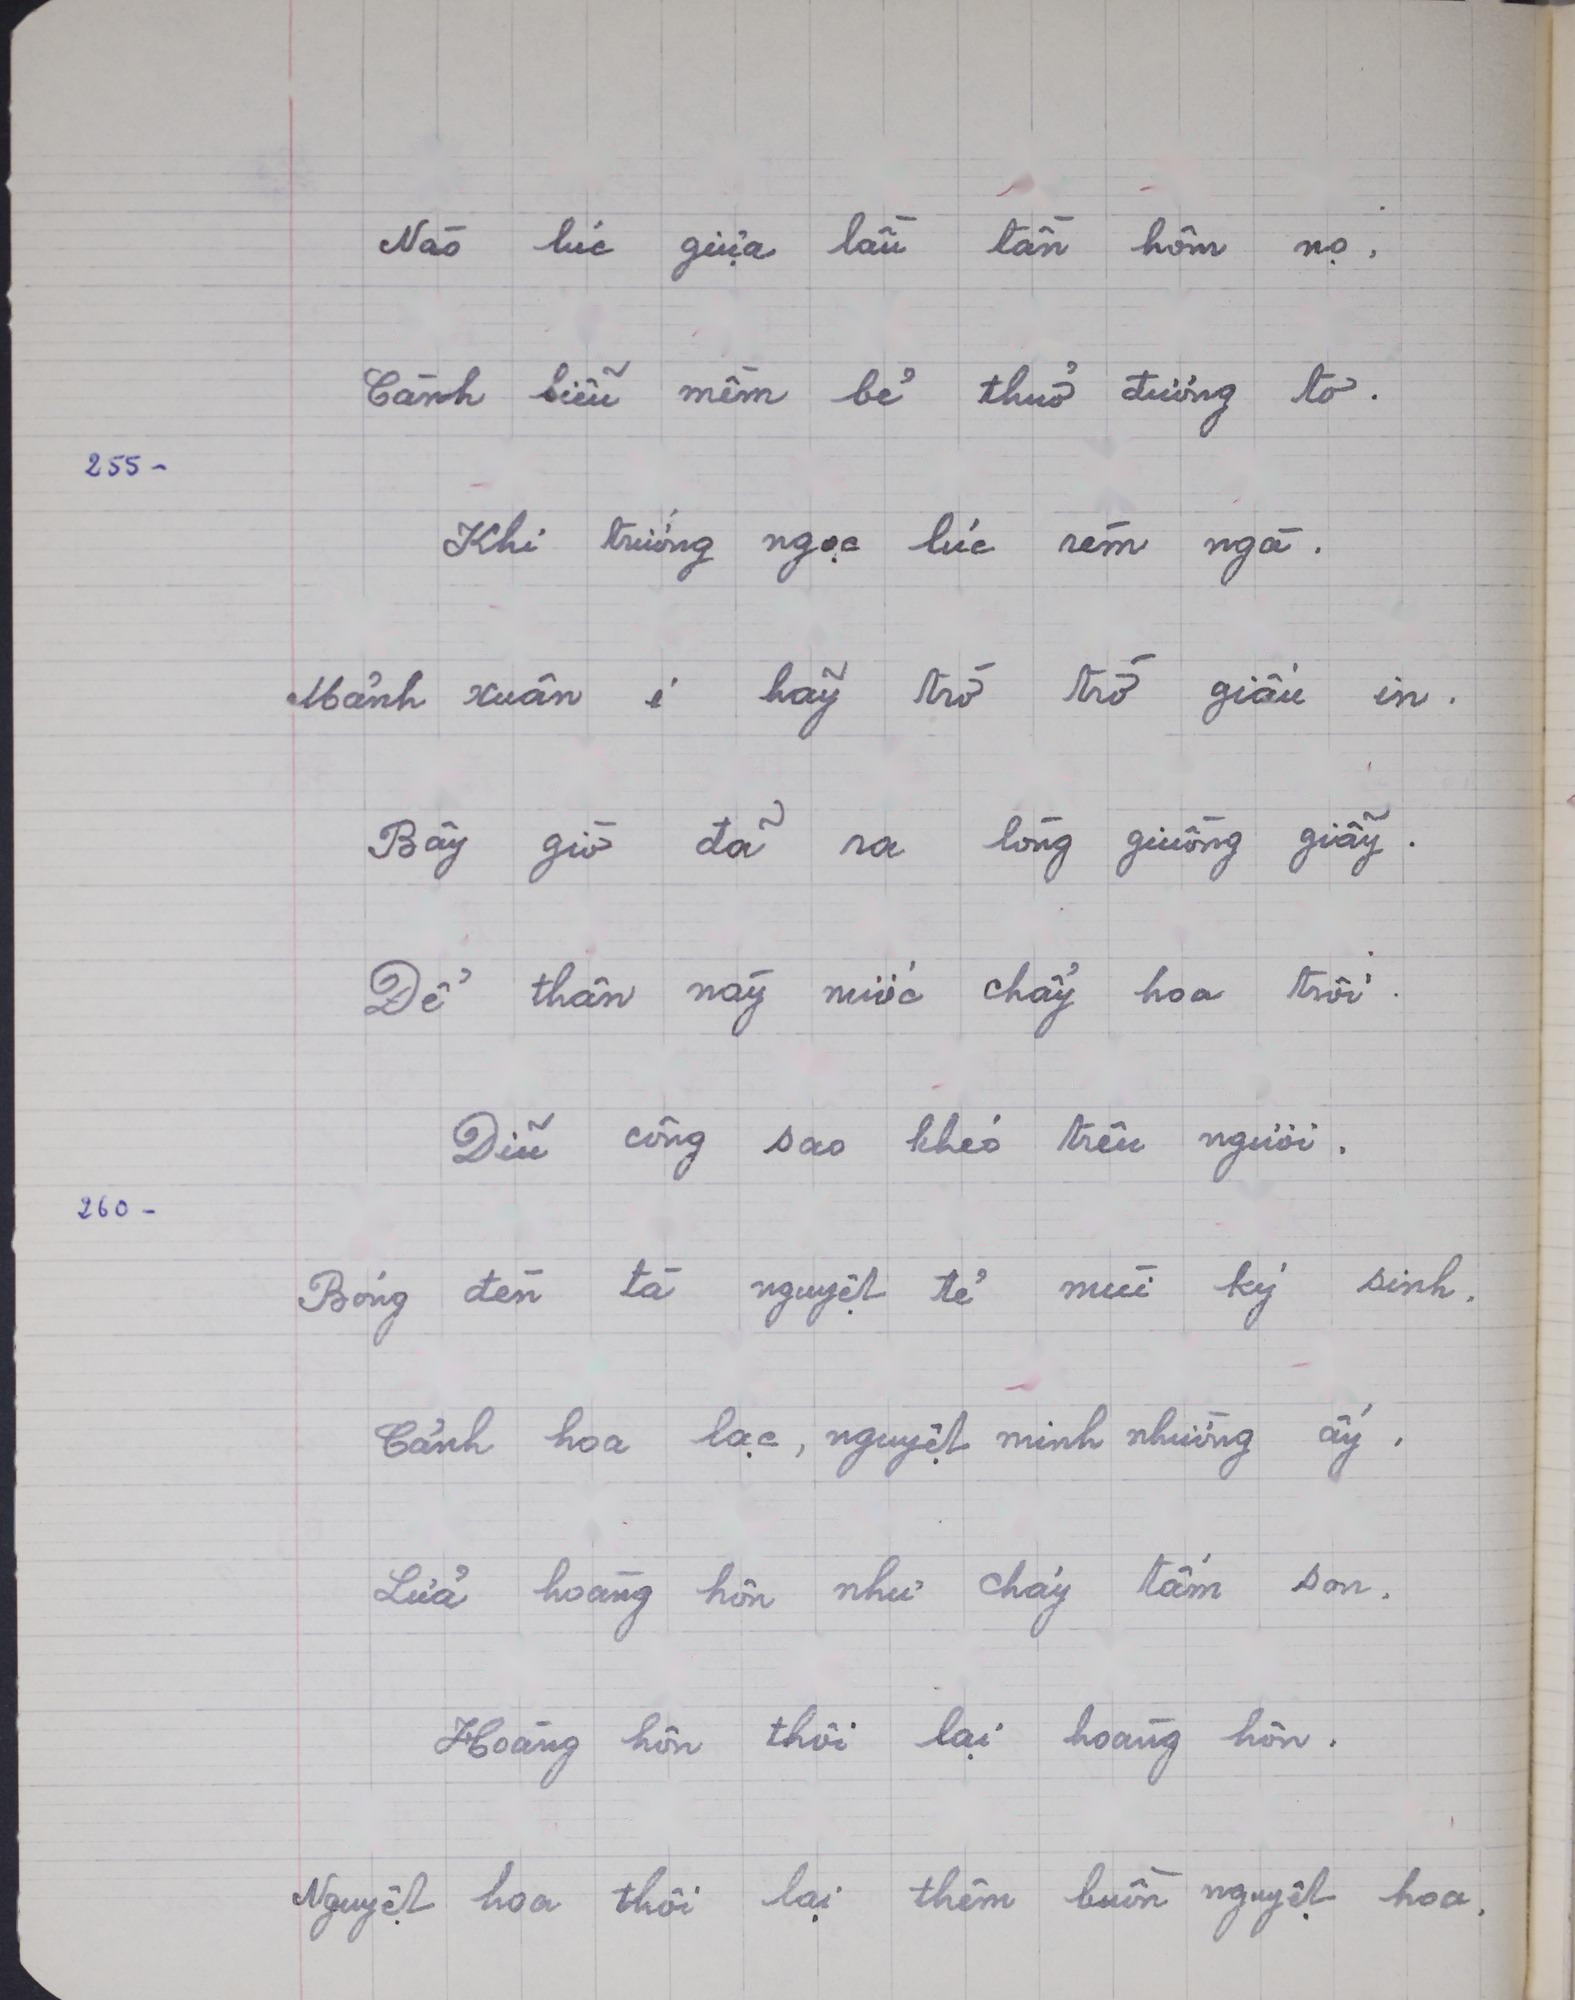 Nào lúc giựa lầu tần hôm nọ,
Cành liễu mềm bẻ thuở đương tơ.
255-
Khi trướng ngọc lúc rèm ngà.
Mảnh xuân í hãy trờ trờ giấu in.
Bây giờ đã ra lòng giuồng giẫy.
Để thân này nước chảy hoa trôi.
Diễu công sao khéo trêu người.
260-
Bóng đèn tà nguyệt tẻ mùi ký sinh.
Cảnh hoa lạc, nguyệt minh nhường ấy,
Lửa hoàng hôn như cháy tấm son.
Hoàng hôn thôi lại hoàng hôn.
Nguyệt hoa thôi lại thêm buồn nguyệt hoa.